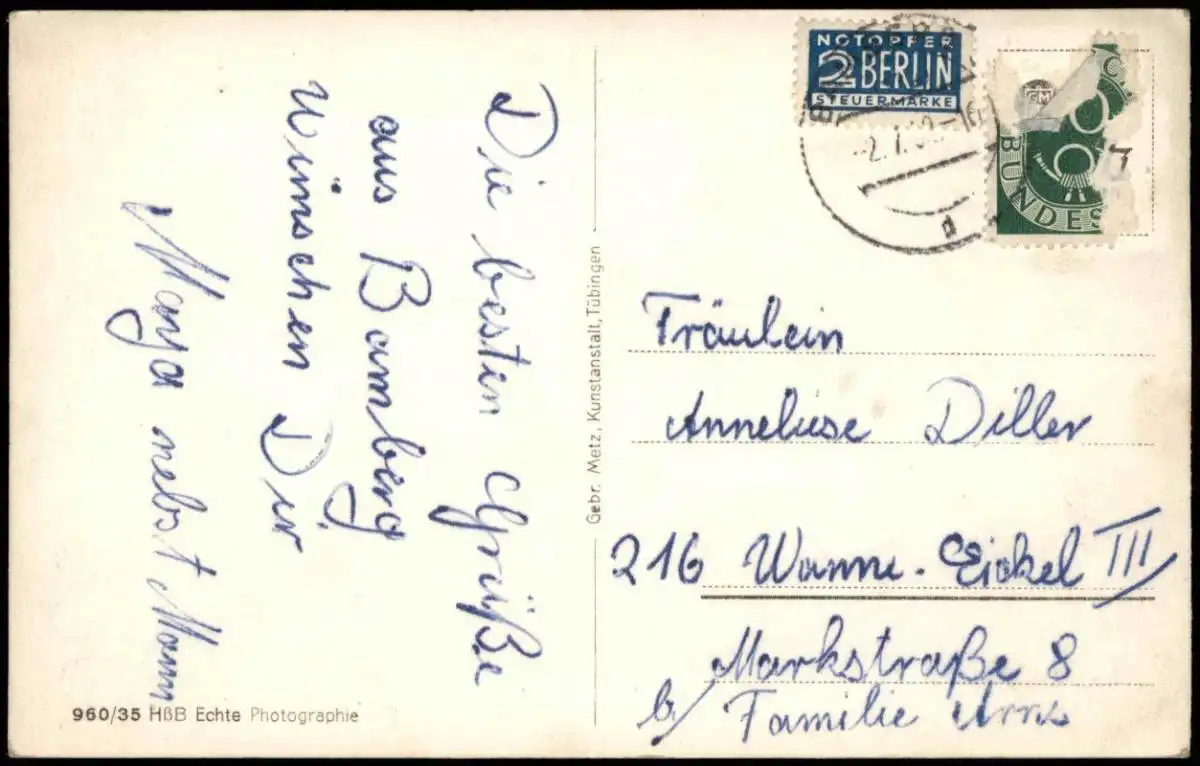 Die besten Grüße
aus Bamberg
wünschen Dir
Manja nebst Mann
960/35 HßB Echte Photographie
Gebr. Metz, Kunstanstalt, Tübingen
NOTOPFER
2 BERLIN
STEUERMARKE
BUNDES
Fräulein
Anneliese Diller
216 Wanne-Eickel III
Markstraße 8
b/ Familie